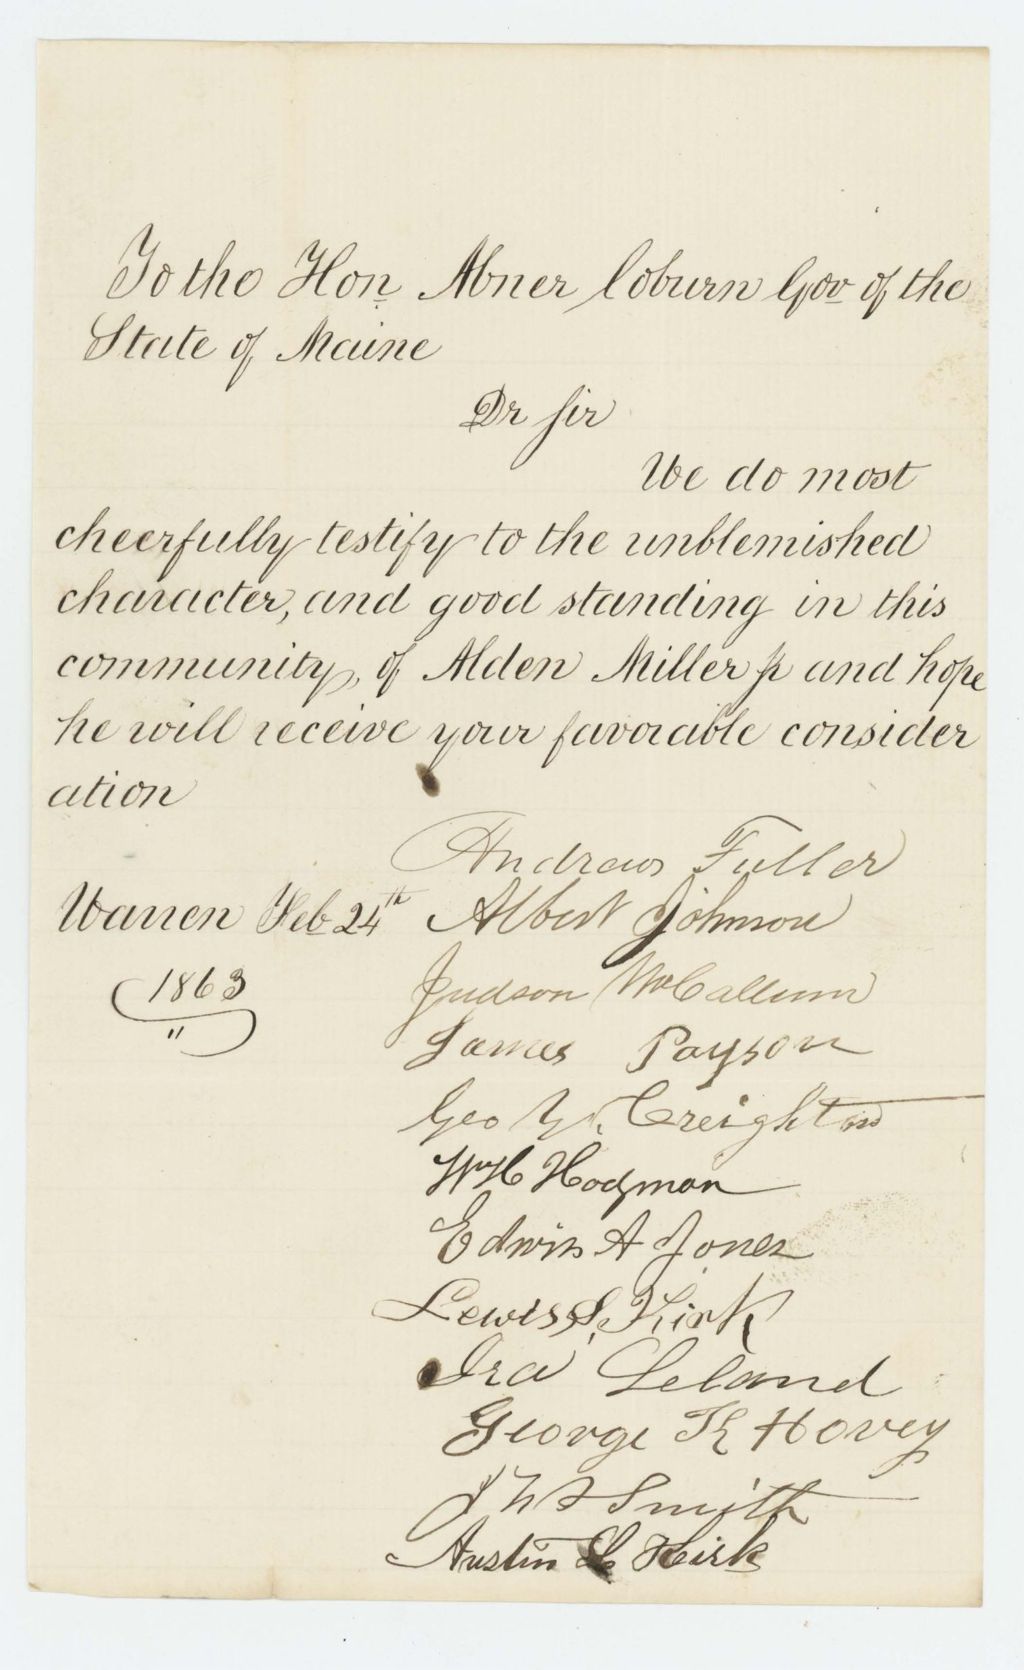 To the Hon Abner Coburn Gov of the
State of Maine
Dr Sir
We do most
cheerfully testify to the unblemished
character, and good standing in this
community, of Alden Miller jr and hope
he will receive your favorable consider
ation
Andrews Fuller
Warren Feb 24th Albert Johnson
1863
"
Judson McCallum
James Payson
Geo Creighton
WH Hodgman
Edwin A Jones
Lewis S. Kirk
Ira Leland
George K Hovey
Smith
Austin Kirk